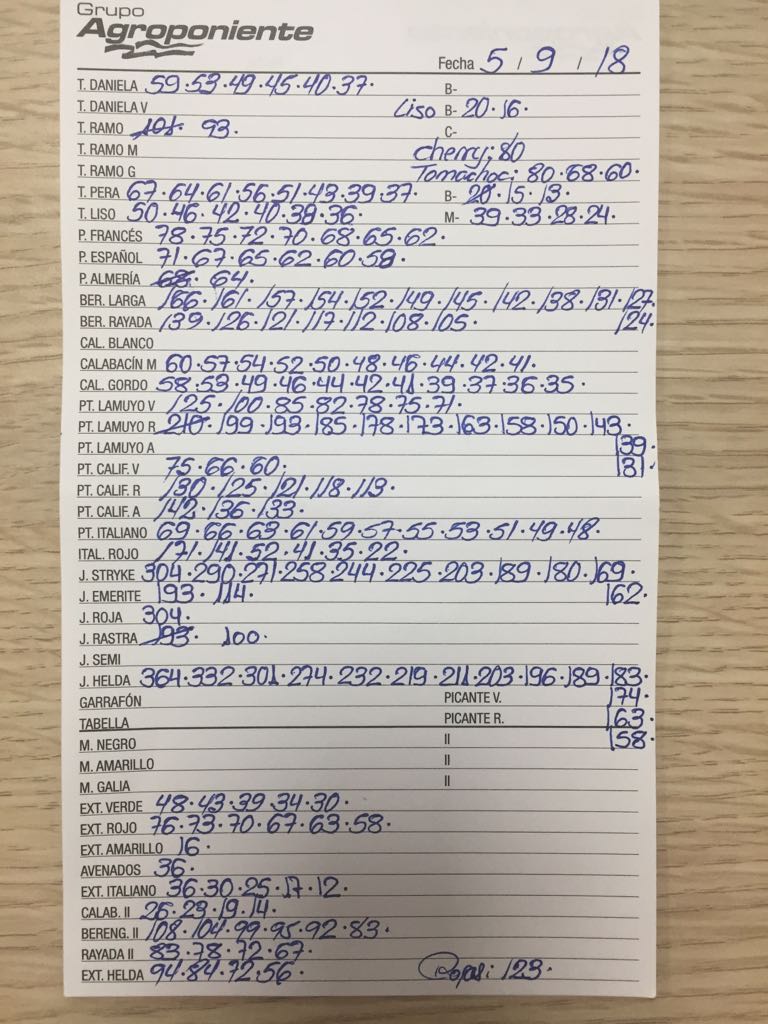 Grupo
Agroponiente
Fecha 5 / 9 / 18
T. DANELA 59·53·49·45·40·37· B-
T. DANIELA V Liso B- 20·16·
T. RAMO 101· 93· C-
T. RAMO M Cherry: 80
T. RAMO G Tomachoc: 80·68·60·
T. PERA 67·64·61·56·51·43·39·37· B- 20·15·13·
T. LISO 50·46·42·40·38·36· M- 39·33·28·24·
P. FRANCÉS 78·75·72·70·68·65·62·
P. ESPAÑOL 71·67·65·62·60·58·
P. ALMERÍA 68· 64·
BER. LARGA 166·161·157·154·152·149·145·142·138·131·127·
BER. RAYADA 139·126·121·117·112·108·105· 124·
CAL. BLANCO
CALABACÍN M 60·57·54·52·50·48·46·44·42·41·
CAL. GORDO 58·53·49·46·44·42·41·39·37·36·35·
PT. LAMUYO V 125·100·85·82·78·75·71·
PT. LAMUYO R 210·199·193·185·178·173·163·158·150·143·
PT. LAMUYO A 139·
PT. CALIF. V 75·66·60· 131·
PT. CALIF. R 130·125·121·118·113·
PT. CALIF. A 142·136·133·
PT. ITALIANO 69·66·63·61·59·57·55·53·51·49·48·
ITAL. ROJO 171·141·52·41·35·22·
J. STRYKE 304·290·271·258·244·225·203·189·180·169·
J. EMERITE 193·114· 162·
J. ROJA 304·
J. RASTRA 193· 100·
J. SEMI
J. HELDA 364·332·301·274·232·219·211·203·196·189·183·
GARRAFÓN PICANTE V. 174·
TABELLA PICANTE R. 163·
M. NEGRO II 158·
M. AMARILLO II
M. GALIA II
EXT. VERDE 48·43·39·34·30·
EXT. ROJO 76·73·70·67·63·58·
EXT. AMARILLO 16·
AVENADOS 36·
EXT. ITALIANO 36·30·25·17·12·
CALAB. II 26·23·19·14·
BERENG. II 108·104·99·95·92·83·
RAYADA II 83·78·72·67·
EXT. HELDA 94·84·72·56· 123·